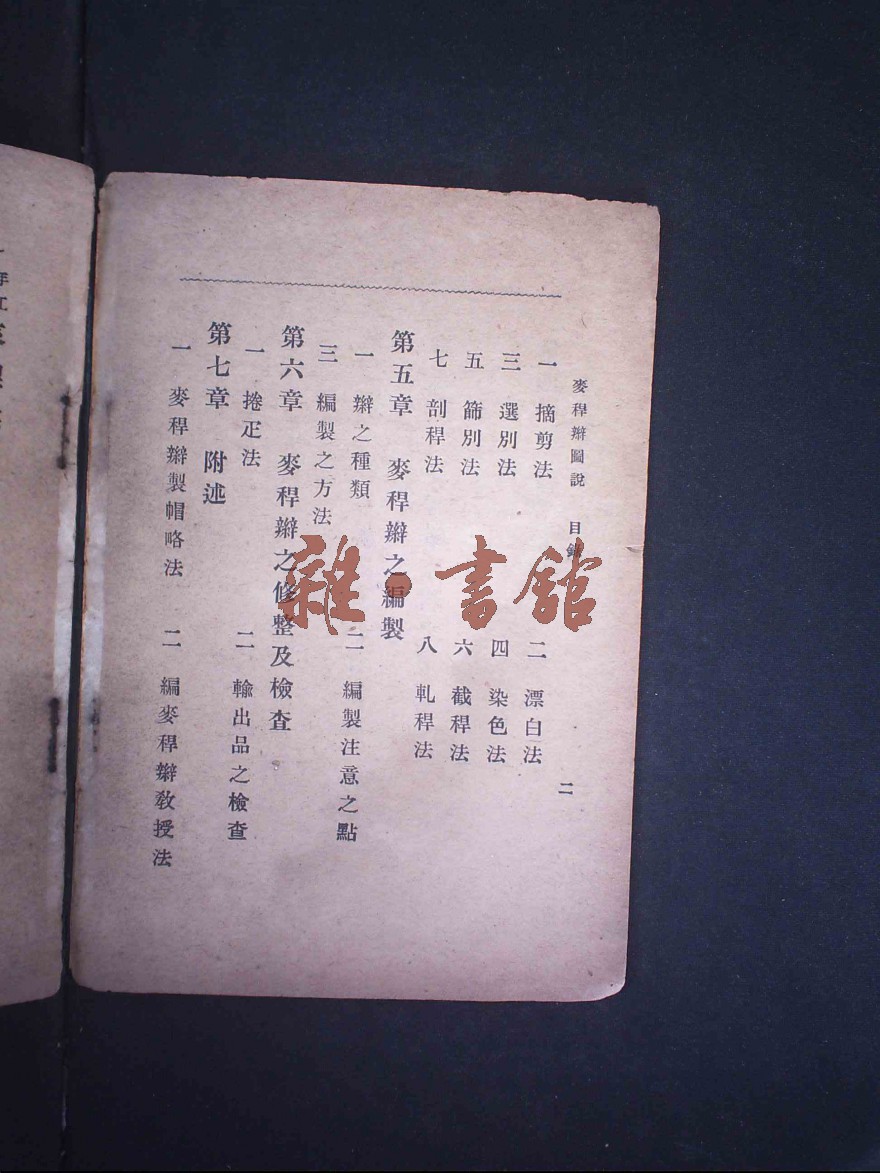 麥稈辮圖說　目錄　二
一　摘剪法　二　漂白法
三　選別法　四　染色法
五　篩別法　六　截稈法
七　剖稈法　八　軋稈法
第五章　麥稈辮之編製
一　辮之種類　二　編製注意之點
三　編製之方法
第六章　麥稈辮之修整及檢查
一　捲疋法　二　輸出品之檢查
第七章　附述
一　麥稈辮製帽略法　二　編麥稈辮教授法
雜·書館